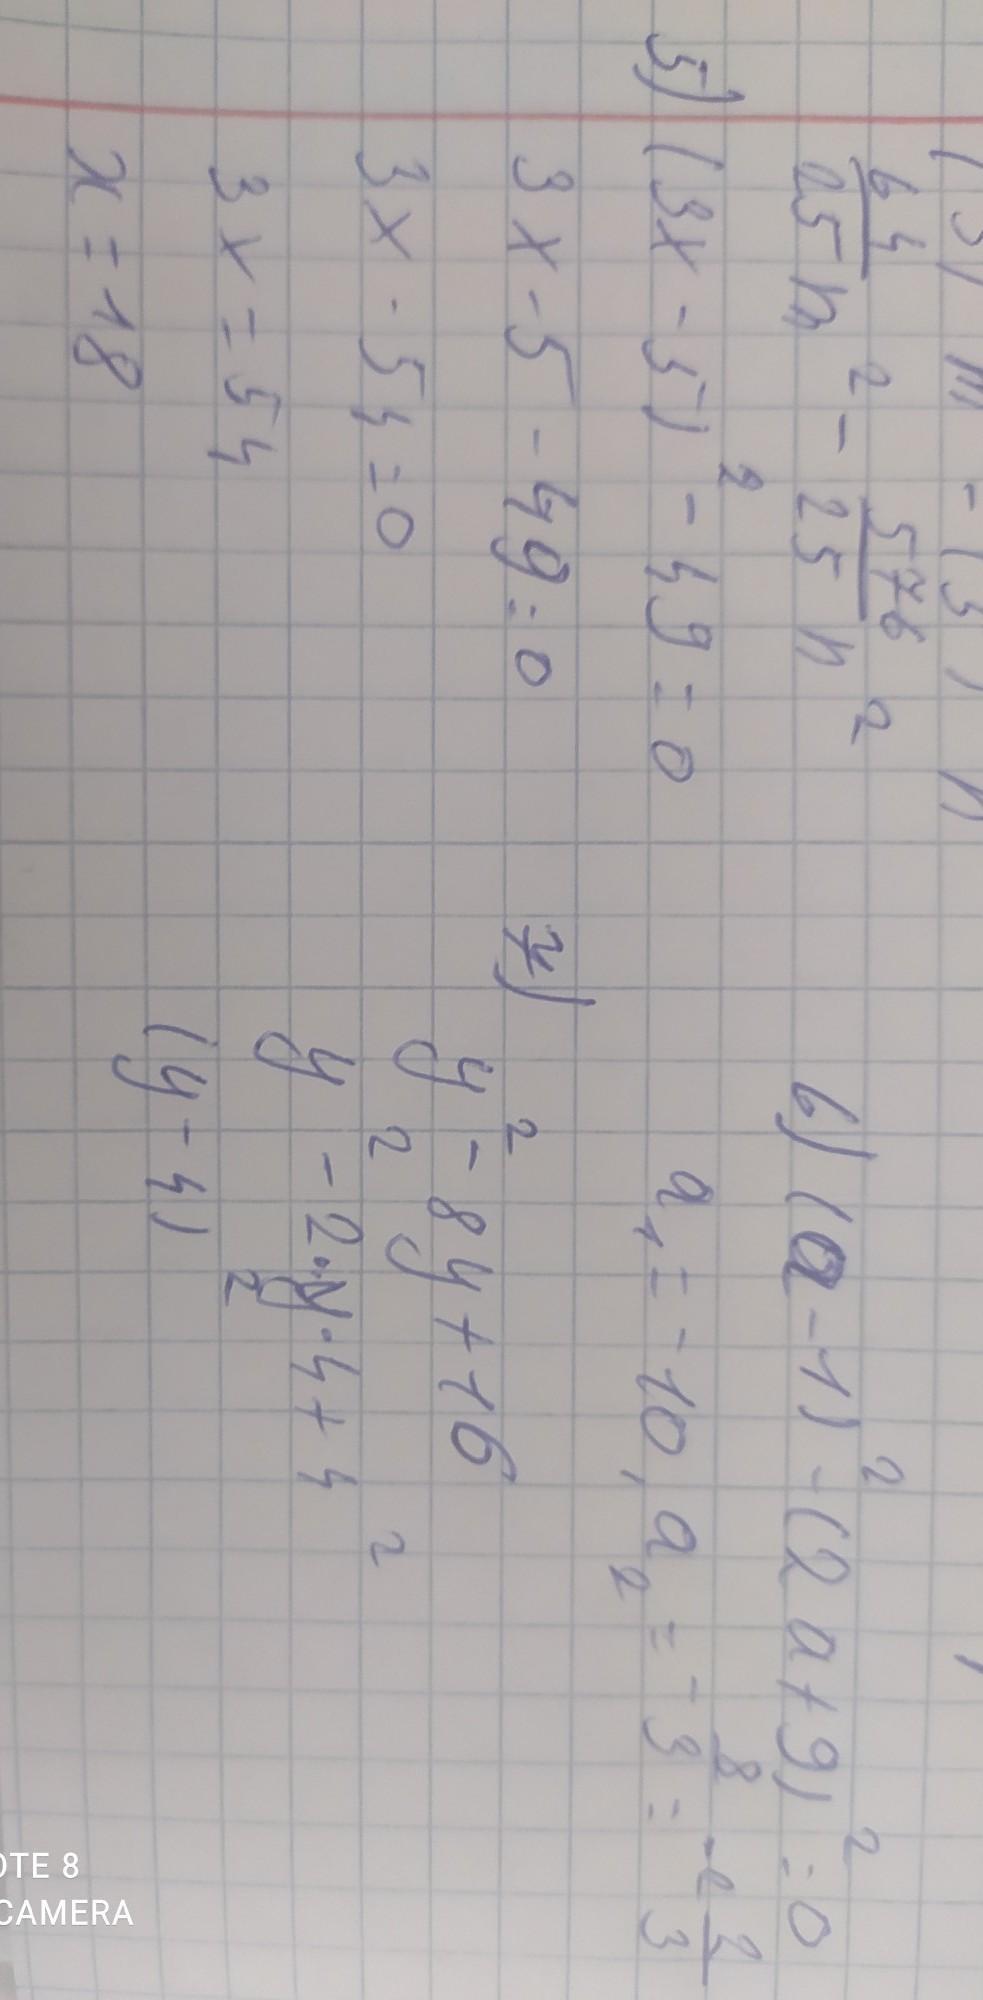 64/25 n² - 576/25 n²
5) (3x - 5)² - 49 = 0
3x - 5 - 49 = 0
3x - 54 = 0
3x = 54
x = 18
6) (a - 1)² - (2a + 9)² = 0
a₁ = -10, a₂ = - 8/3 = -2 2/3
7) y² - 8y + 16
y² - 2·y·4 + 4²
(y - 4)²
OTE 8
CAMERA